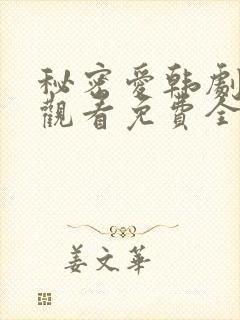 秘密愛韩劇
觀看免費全
姜文華